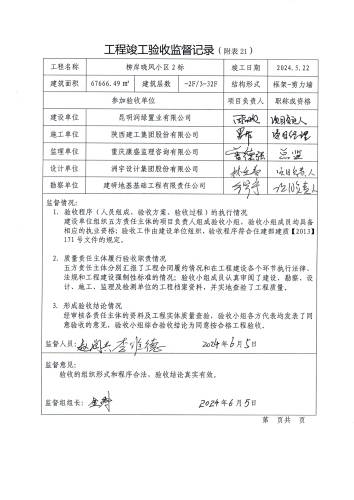 工程竣工验收监督记录（附表 21）
工程名称 柳岸晓风小区 2 标 竣工日期 2024.5.22
建筑面积 67666.49 ㎡ 建筑层数 -2F/3-32F 结构形式 框架-剪力墙
参加验收单位 项目负责人 职称或资格
建设单位 昆明润绿置业有限公司 项目负责人
施工单位 陕西建工集团股份有限公司 项目经理
监理单位 重庆康盛监理咨询有限公司 总监
设计单位 洲宇设计集团股份有限公司 项目负责人
勘察单位 建明地基基础工程有限责任公司
监督情况：
1、验收程序（人员组成、验收方案、验收过程）的执行情况
建设单位组织五方责任主体的项目负责人组成验收小组，验收小组成员均具备
相应的执业资格；验收工作由建设单位组织，验收程序符合住建部建质【2013】
171 号文件的规定。
2、质量责任主体履行验收职责情况
五方责任主体分别汇报了工程合同履约情况和在工程建设各个环节执行法律、
法规和工程建设强制性标准的情况；验收小组成员认真审阅了建设、勘察、设
计、施工、监理及检测单位的工程档案资料，并实地查验了工程质量。
3、形成验收结论情况
经审核各责任主体的资料及工程实体质量查验，验收小组各方代表均发表了同
意验收的意见，验收小组综合验收结论为同意按合格工程验收。
监督人员： 李维德 2024 年 6 月 5 日
监督意见：
验收的组织形式和程序合法，验收结论真实有效。
监督组组长： 2024 年 6 月 5 日
第 页共 页